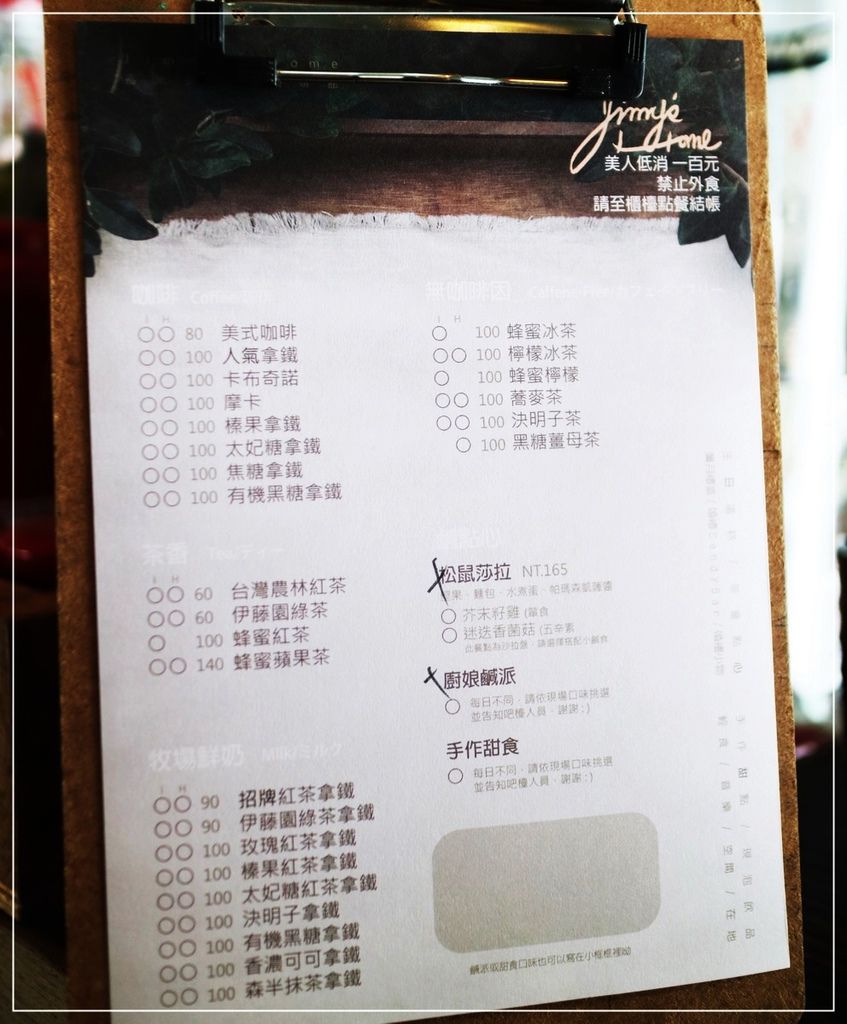 Jimy's Home
美人低消一百元
禁止外食
請至櫃檯點餐結帳
咖啡 Coffee
I H
80 美式咖啡
100 人氣拿鐵
100 卡布奇諾
100 摩卡
100 榛果拿鐵
100 太妃糖拿鐵
100 焦糖拿鐵
100 有機黑糖拿鐵
茶香 Tea/ティー
I H
60 台灣農林紅茶
60 伊藤園綠茶
100 蜂蜜紅茶
140 蜂蜜蘋果茶
牧場鮮奶 Milk/ミルク
I H
90 招牌紅茶拿鐵
90 伊藤園綠茶拿鐵
100 玫瑰紅茶拿鐵
100 榛果紅茶拿鐵
100 太妃糖紅茶拿鐵
100 決明子拿鐵
100 有機黑糖拿鐵
100 香濃可可拿鐵
100 森半抹茶拿鐵
無咖啡因 Caffeine-Free/カフェインフリー
I H
100 蜂蜜冰茶
100 檸檬冰茶
100 蜂蜜檸檬
100 蕎麥茶
100 決明子茶
100 黑糖薑母茶
松鼠莎拉 NT.165
堅果、麵包、水煮蛋、帕瑪森凱薩醬
芥末籽雞 (葷食
迷迭香菌菇 (五辛素
此餐點為沙拉盤，請選擇搭配小鹹食
廚娘鹹派
每日不同，請依現場口味挑選
並告知吧檯人員，謝謝:)
手作甜食
每日不同，請依現場口味挑選
並告知吧檯人員，謝謝:)
鹹派或甜食口味也可以寫在小框框裡呦
手作甜點 / 現泡飲品
輕食 / 音樂 / 空間 / 在地